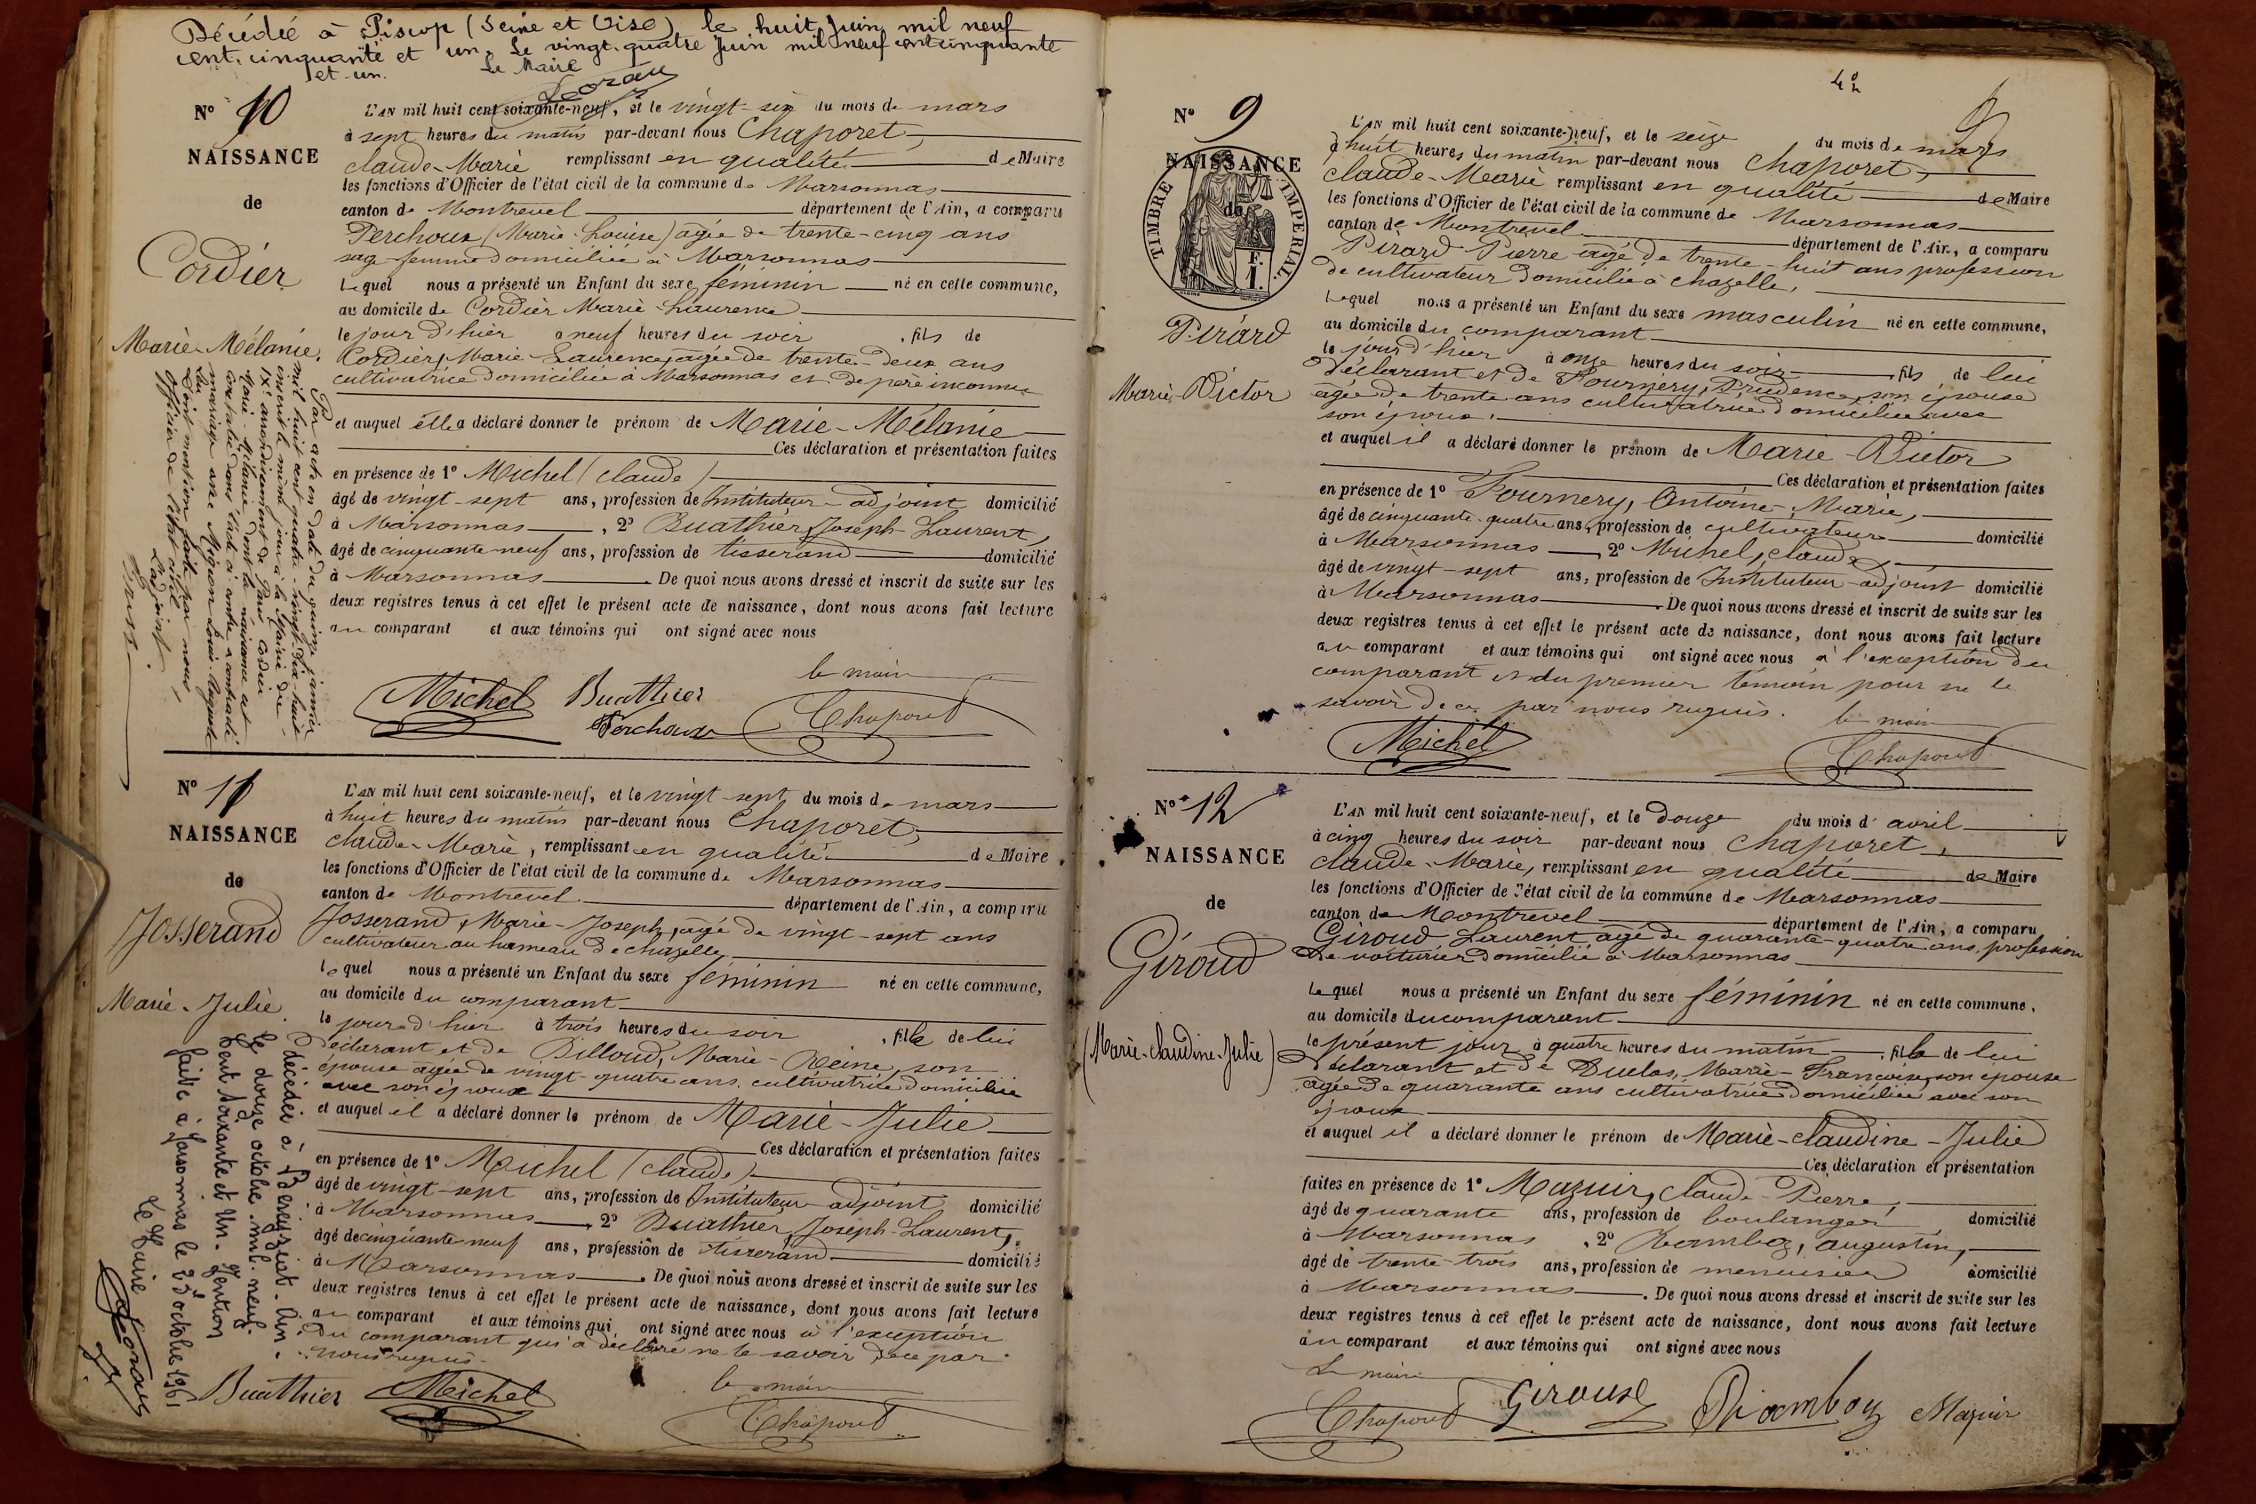 Décédée à Piscop (Seine et Oise) le huit Juin mil neuf
cent cinquante et un. Le vingt quatre Juin mil neuf cent cinquante
et un. Le Maire
N° 10
NAISSANCE
de
Cordier
Marie-Mélanie.
L'AN mil huit cent soixante-neuf, et le vingt-six du mois de mars
à sept heures du matin par-devant nous Chaporet,
claude-Marie remplissant en qualité de Maire
les fonctions d'Officier de l'état civil de la commune de Marsonnas
canton de Montrevel département de l'Ain, a comparu
Perchoux (Marie-Louise) âgée de trente-cinq ans
sage-femme domiciliée à Marsonnas
Lequel nous a présenté un Enfant du sexe féminin né en cette commune,
au domicile de Cordier Marie-Laurence
le jour d'hier à neuf heures du soir, fils de
Cordier, Marie-Laurence, âgée de trente-deux ans
cultivatrice domiciliée à Marsonnas et de père inconnu
et auquel elle a déclaré donner le prénom de Marie-Mélanie
Ces déclaration et présentation faites
en présence de 1° Michel (claude)
âgé de vingt-sept ans, profession de Instituteur-adjoint domicilié
à Marsonnas, 2° Buathier, Joseph-Laurent,
âgé de cinquante-neuf ans, profession de tisserand domicilié
à Marsonnas. De quoi nous avons dressé et inscrit de suite sur les
deux registres tenus à cet effet le présent acte de naissance, dont nous avons fait lecture
au comparant et aux témoins qui ont signé avec nous
le maire
Michel Buathier
Perchoux Chaporet
Par acte en date du quinze janvier
mil huit cent quatre-vingt-dix huit
inscrit le même jour à la Mairie du
IXe arrondissement de Paris, Cordier
Marie-Mélanie dont la naissance est
constatée dans l'acte ci contre a contracté
mariage avec Mignon Louis Auguste
Dont mention faite par nous,
officier de l'état civil
L'adjoint,
N° 11
NAISSANCE
de
Josserand
Marie-Julie.
L'AN mil huit cent soixante-neuf, et le vingt-sept du mois de mars
à huit heures du matin par-devant nous Chaporet,
claude-Marie, remplissant en qualité de Maire
les fonctions d'Officier de l'état civil de la commune de Marsonnas
canton de Montrevel département de l'Ain, a comparu
Josserand, Marie-Joseph, âgé de vingt-sept ans
cultivateur au hameau de chazelle
lequel nous a présenté un Enfant du sexe féminin né en cette commune,
au domicile du comparant
le jour d'hier à trois heures du soir, fille de lui
déclarant et de Billoud, Marie-Reine, son
épouse âgée de vingt-quatre ans, cultivatrice domiciliée
avec son époux
et auquel il a déclaré donner le prénom de Marie-Julie
Ces déclaration et présentation faites
en présence de 1° Michel (claude)
âgé de vingt-sept ans, profession de Instituteur adjoint domicilié
à Marsonnas, 2° Buathier, Joseph-Laurent,
âgé de cinquante-neuf ans, profession de tisserand domicilié
à Marsonnas. De quoi nous avons dressé et inscrit de suite sur les
deux registres tenus à cet effet le présent acte de naissance, dont nous avons fait lecture
au comparant et aux témoins qui ont signé avec nous à l'exception
du comparant qui a déclaré ne le savoir de ce par
nous requis.
le maire
Buathier Michel Chaporet
décédée à Béreyziat. Ain.
le douze octobre mil neuf
cent soixante et un. Mention
faite à Marsonnas le 23 octobre 1961
Le Maire
N° 9
NAISSANCE
de
TIMBRE IMPERIAL.
F.
1.
Pirard
Marie-Victor
L'AN mil huit cent soixante-neuf, et le seize du mois de mars
à huit heures du matin par-devant nous Chaporet,
claude-Marie remplissant en qualité de Maire
les fonctions d'Officier de l'état civil de la commune de Marsonnas
canton de Montrevel département de l'Ain, a comparu
Pirard Pierre âgé de trente-huit ans profession
de cultivateur domicilié à chazelle,
Lequel nous a présenté un Enfant du sexe masculin né en cette commune,
au domicile du comparant
le jour d'hier à onze heures du soir fils de lui
déclarant et de Fournery, Prudence, son épouse
âgée de trente ans cultivatrice domiciliée avec
son époux.
et auquel il a déclaré donner le prénom de Marie-Victor
Ces déclaration et présentation faites
en présence de 1° Fournery, Antoine-Marie,
âgé de cinquante-quatre ans, profession de cultivateur domicilié
à Marsonnas, 2° Michel, claude,
âgé de vingt-sept ans, profession de Instituteur-adjoint domicilié
à Marsonnas. De quoi nous avons dressé et inscrit de suite sur les
deux registres tenus à cet effet le présent acte de naissance, dont nous avons fait lecture
au comparant et aux témoins qui ont signé avec nous à l'exception du
comparant et du premier témoin pour ne le
savoir de ce par nous requis.
le maire
Michel Chaporet
N° 12
NAISSANCE
de
Giroud
(Marie-claudine-Julie)
L'AN mil huit cent soixante-neuf, et le douze du mois d'avril
à cinq heures du soir par-devant nous Chaporet,
claude-Marie, remplissant en qualité de Maire
les fonctions d'Officier de l'état civil de la commune de Marsonnas
canton de Montrevel département de l'Ain, a comparu
Giroud Laurent âgé de quarante-quatre ans, profession
de voiturier domicilié à Marsonnas
Lequel nous a présenté un Enfant du sexe féminin né en cette commune,
au domicile du comparant
le présent jour à quatre heures du matin, fille de lui
déclarant et de Duclos, Marie-Françoise, son épouse
âgée de quarante ans cultivatrice domiciliée avec son
époux
et auquel il a déclaré donner le prénom de Marie-claudine-Julie
Ces déclaration et présentation
faites en présence de 1° Mazuir, claude-Pierre,
âgé de quarante ans, profession de boulanger domicilié
à Marsonnas, 2° Ramboz, augustin,
âgé de trente-trois ans, profession de menuisier domicilié
à Marsonnas. De quoi nous avons dressé et inscrit de suite sur les
deux registres tenus à cet effet le présent acte de naissance, dont nous avons fait lecture
au comparant et aux témoins qui ont signé avec nous
Le maire
Chaporet Giroud Ramboz Mazuir